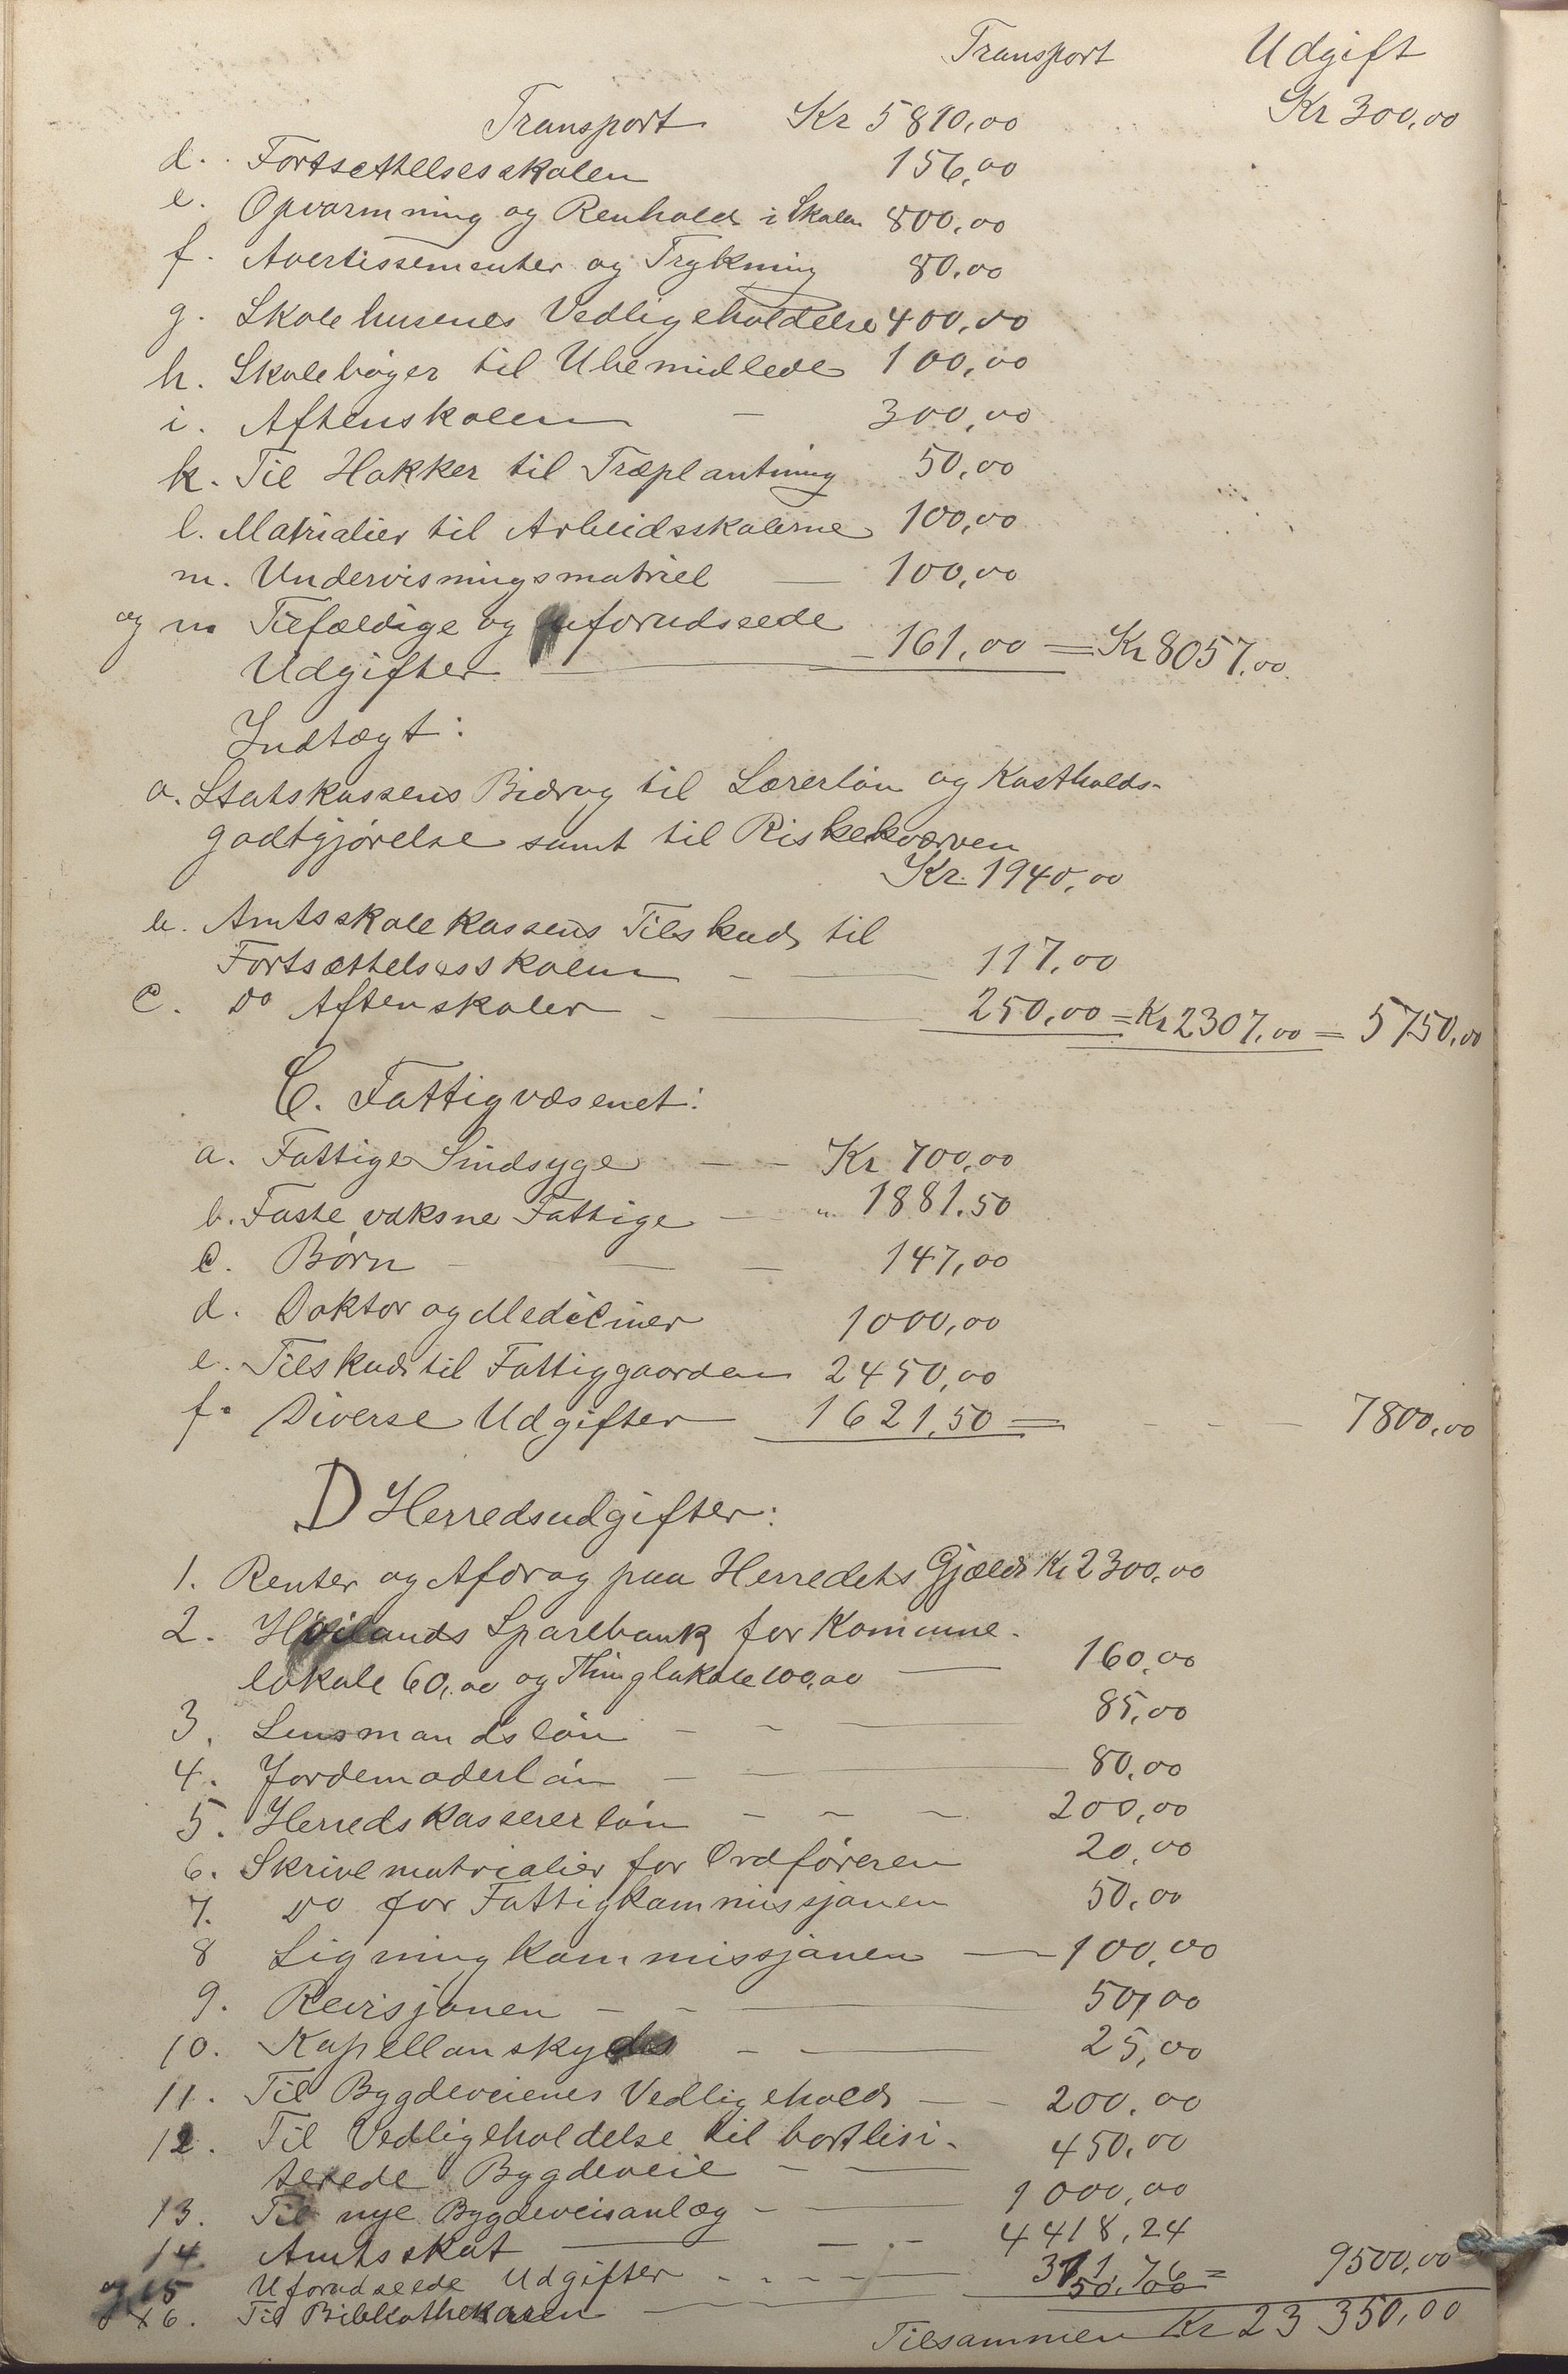 Transport Udgift
Transport Kr 5810,00 Kr 300,00
d. Fortsettelsesskolen 156,00
e. Opvarmning og Renhold i Skolen 800,00
f. Avertissementer og Trykning 80,00
g. Skolehusenes Vedligeholdelse 400,00
h. Skolebøger til Ubemidlede 100,00
i. Aftenskolen — 300,00
k. Til Hakker til Træplantning 50,00
l. Matrialier til Arbeidsskolerne 100,00
m. Undervisningsmatriel — 100,00
og n Tilfældige og uforudseede
Udgifter — 161,00 = Kr 8057,00
Indtægt:
a. Statskassens Bidrag til Lærerløn og Kostholds-
godtgjørelse samt til Riskekværven
Kr. 1940,00
b. Amtsskolekassens Tilskud til
Fortsættelsesskolen — 117,00
c. Do Aftenskoler — 250,00 = Kr 2307,00 = 5750,00
C. Fattigvæsenet:
a. Fattige Sindsyge — Kr 700,00
b. Faste voksne Fattige — " 1881.50
c. Børn — 147,00
d. Doktor og Mediciner 1000,00
e. Tilskud til Fattiggaarden 2450,00
f. Diverse Udgifter 1621,50 = — 7800,00
D Herredsudgifter:
1. Renter og Afdrag paa Herredets Gjæld Kr 2300,00
2. Høilands Sparebank for Kommune-
lokale 60,00 og Thinglokale 100,00 — 160,00
3. Lensmandsløn — 85,00
4. Jordemoderløn — 80,00
5. Herredskassererløn — 200,00
6. Skrivematrialier for Ordføreren 20,00
7. Do for Fattigkommissjonen 50,00
8 Ligningkommissjonen — 100,00
9. Revisjonen — 50,00
10. Kapellanskyds — 25,00
11. Til Bygdeveienes Vedligehold — 200,00
12. Til Vedligeholdelse til bortlisi-
terede Bygdeveie — 450,00
13. Til nye Bygdeveisanlæg — 1000,00
14. Amtsskat — 4418,24
og 15 Uforudseede Udgifter — 311,76 = 9500,00
16. Til Bibliothekaren — 50,00
Tilsammen Kr 23 350,00